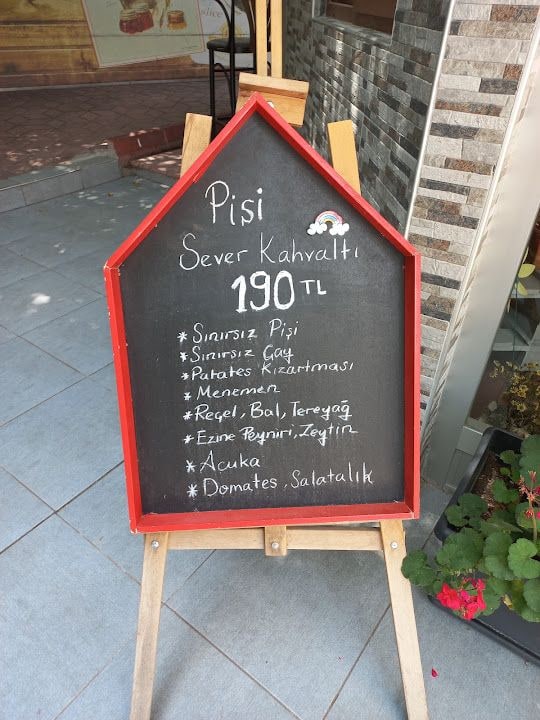 since
Pişi
Sever Kahvaltı
190 TL
* Sınırsız Pişi
* Sınırsız Çay
* Patates Kızartması
* Menemen
* Reçel, Bal, Tereyağ
* Ezine Peyniri, Zeytin
* Acuka
* Domates, Salatalık